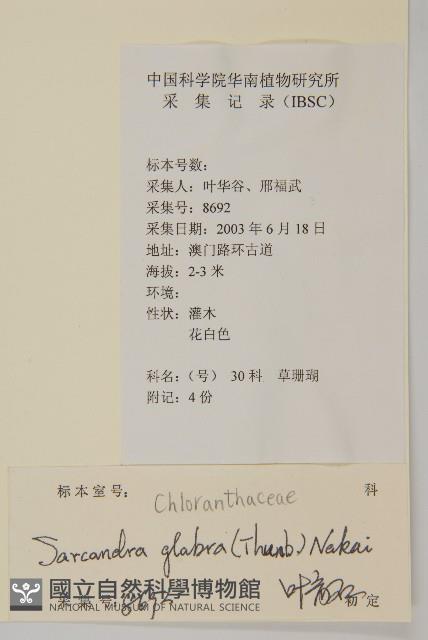 中国科学院华南植物研究所
采 集 记 录（IBSC）
标本号数：
采集人：叶华谷、邢福武
采集号：8692
采集日期：2003 年 6 月 18 日
地址：澳门路环古道
海拔：2-3 米
环境：
性状：灌木
花白色
科名：（号） 30 科 草珊瑚
附记：4 份
标本室号： Chloranthaceae 科
Sarcandra glabra (Thunb.) Nakai
國立自然科學博物館
NATIONAL MUSEUM OF NATURAL SCIENCE
采集号 8692 定